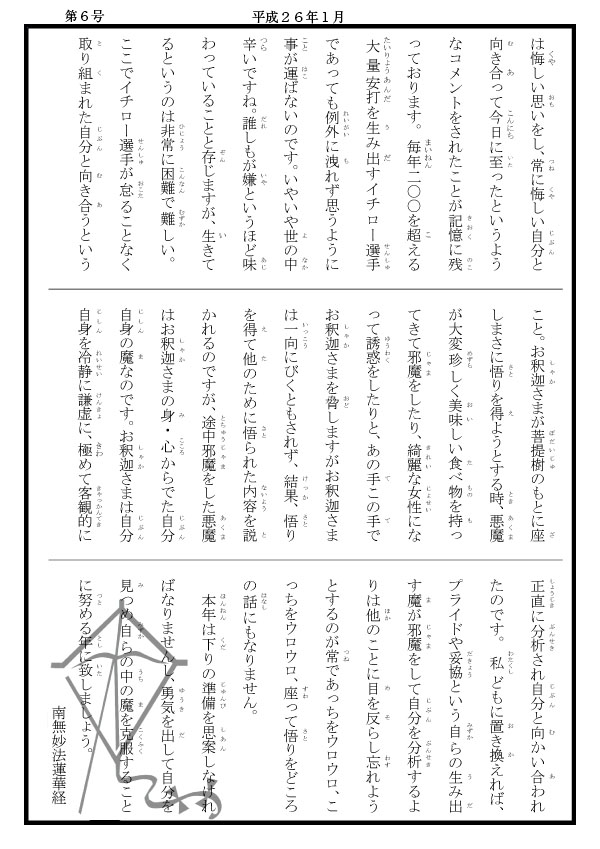 第６号
平成２６年１月
は悔しい思いをし、常に悔しい自分と
向き合って今日に至ったというよう
なコメントをされたことが記憶に残
っております。毎年二〇〇を超える
大量安打を生み出すイチロー選手
であっても例外に洩れず思うように
事が運ばないのです。いやいや世の中
辛いですね。誰しもが嫌というほど味
わっていることと存じますが、生きて
るというのは非常に困難で難しい。
ここでイチロー選手が怠ることなく
取り組まれた自分と向き合うという
こと。お釈迦さまが菩提樹のもとに座
しまさに悟りを得ようとする時、悪魔
が大変珍しく美味しい食べ物を持っ
てきて邪魔をしたり、綺麗な女性にな
って誘惑をしたりと、あの手この手で
お釈迦さまを脅しますがお釈迦さま
は一向にびくともされず、結果、悟り
を得て他のために悟られた内容を説
かれるのですが、途中邪魔をした悪魔
はお釈迦さまの身・心からでた自分
自身の魔なのです。お釈迦さまは自分
自身を冷静に謙虚に、極めて客観的に
正直に分析され自分と向かい合われ
たのです。　私どもに置き換えれば、
プライドや妥協という自らの生み出
す魔が邪魔をして自分を分析するよ
りは他のことに目を反らし忘れよう
とするのが常であっちをウロウロ、こ
っちをウロウロ、座って悟りをどころ
の話にもなりません。
　本年は下りの準備を思案しなけれ
ばなりませんし、勇気を出して自分を
見つめ自らの中の魔を克服すること
に努める年に致しましょう。
南無妙法蓮華経